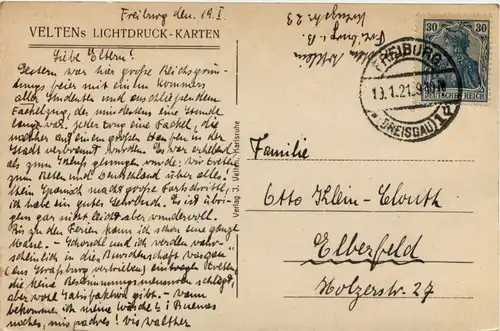 Freiburg den. 19. I.
VELTENs LICHTDRUCK-KARTEN
Liebe Eltern!
Gestern war hier große Reichsgrün-
dungsfeier mit ein Kommers
aller Studenten und anschließendem
Fackelzug, der mindestens eine Stunde
lang war. jeder trug eine Fackel, die
nachher auf einen großen Haufen in der
Stadt verbrannt wurden. Es war erhebend
als zum Schluß gesungen wurde: wir treten
zum Beten und Deutschland über alles!
Mein Spanisch macht große Fortschritte,
ich habe ein gutes Lehrbuch. Es ist übri-
gens gar nicht leicht aber wundervoll.
Bis zu den Ferien kann ich schon eine ganze
Masse. - Schorschl und ich werden wahr-
scheinlich in die Burschenschaft
aus Straßburg vertrieben, eintreten,
die keine Bestimmungsmensuren schlägt,
aber wohl Satisfaktion gibt. - Wann
bekomme ich meine Wäsche? i Buenas
noches mis padres! Vis Walther
Verlag J. Velten, Karlsruhe
Freiburg i. B.
30
30
DEUTSCHES REICH
FREIBURG
19.1.21.9-10.N
(BREISGAU)
Familie
Otto Klein-Clouth
Elberfeld
Holzerstr. 27